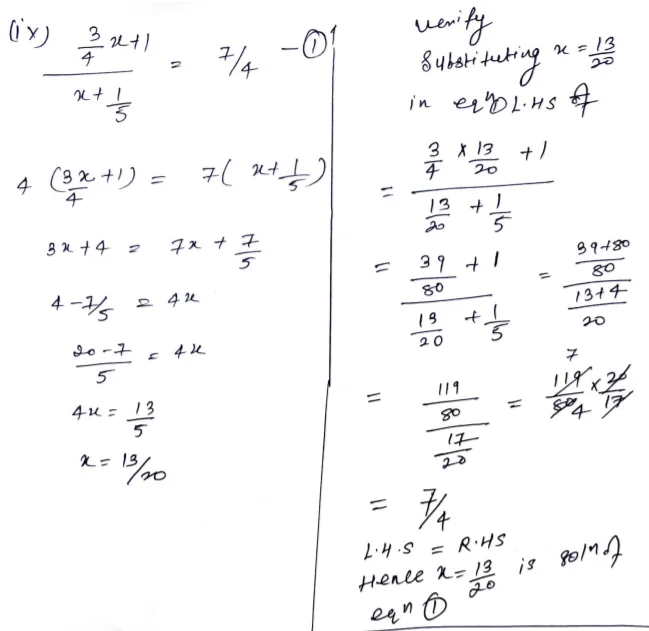 (ix) (3/4 x+1)/(x+1/5) = 7/4 - ①
4 (3x/4 +1) = 7( x+1/5)
3x+4 = 7x + 7/5
4-7/5 = 4x
(20-7)/5 = 4x
4x = 13/5
x = 13/20
verify
Substituting x = 13/20
in eqn ① L.HS of
= (3/4 x 13/20 +1)/(13/20 + 1/5)
= (39/80 + 1)/(13/20 + 1/5) = ((39+80)/80)/((13+4)/20)
= (119/80)/(17/20) = 7 119/80 4 x 20/17
= 7/4
L.H.S = R.HS
Hence x = 13/20 is soln of
eqn ①